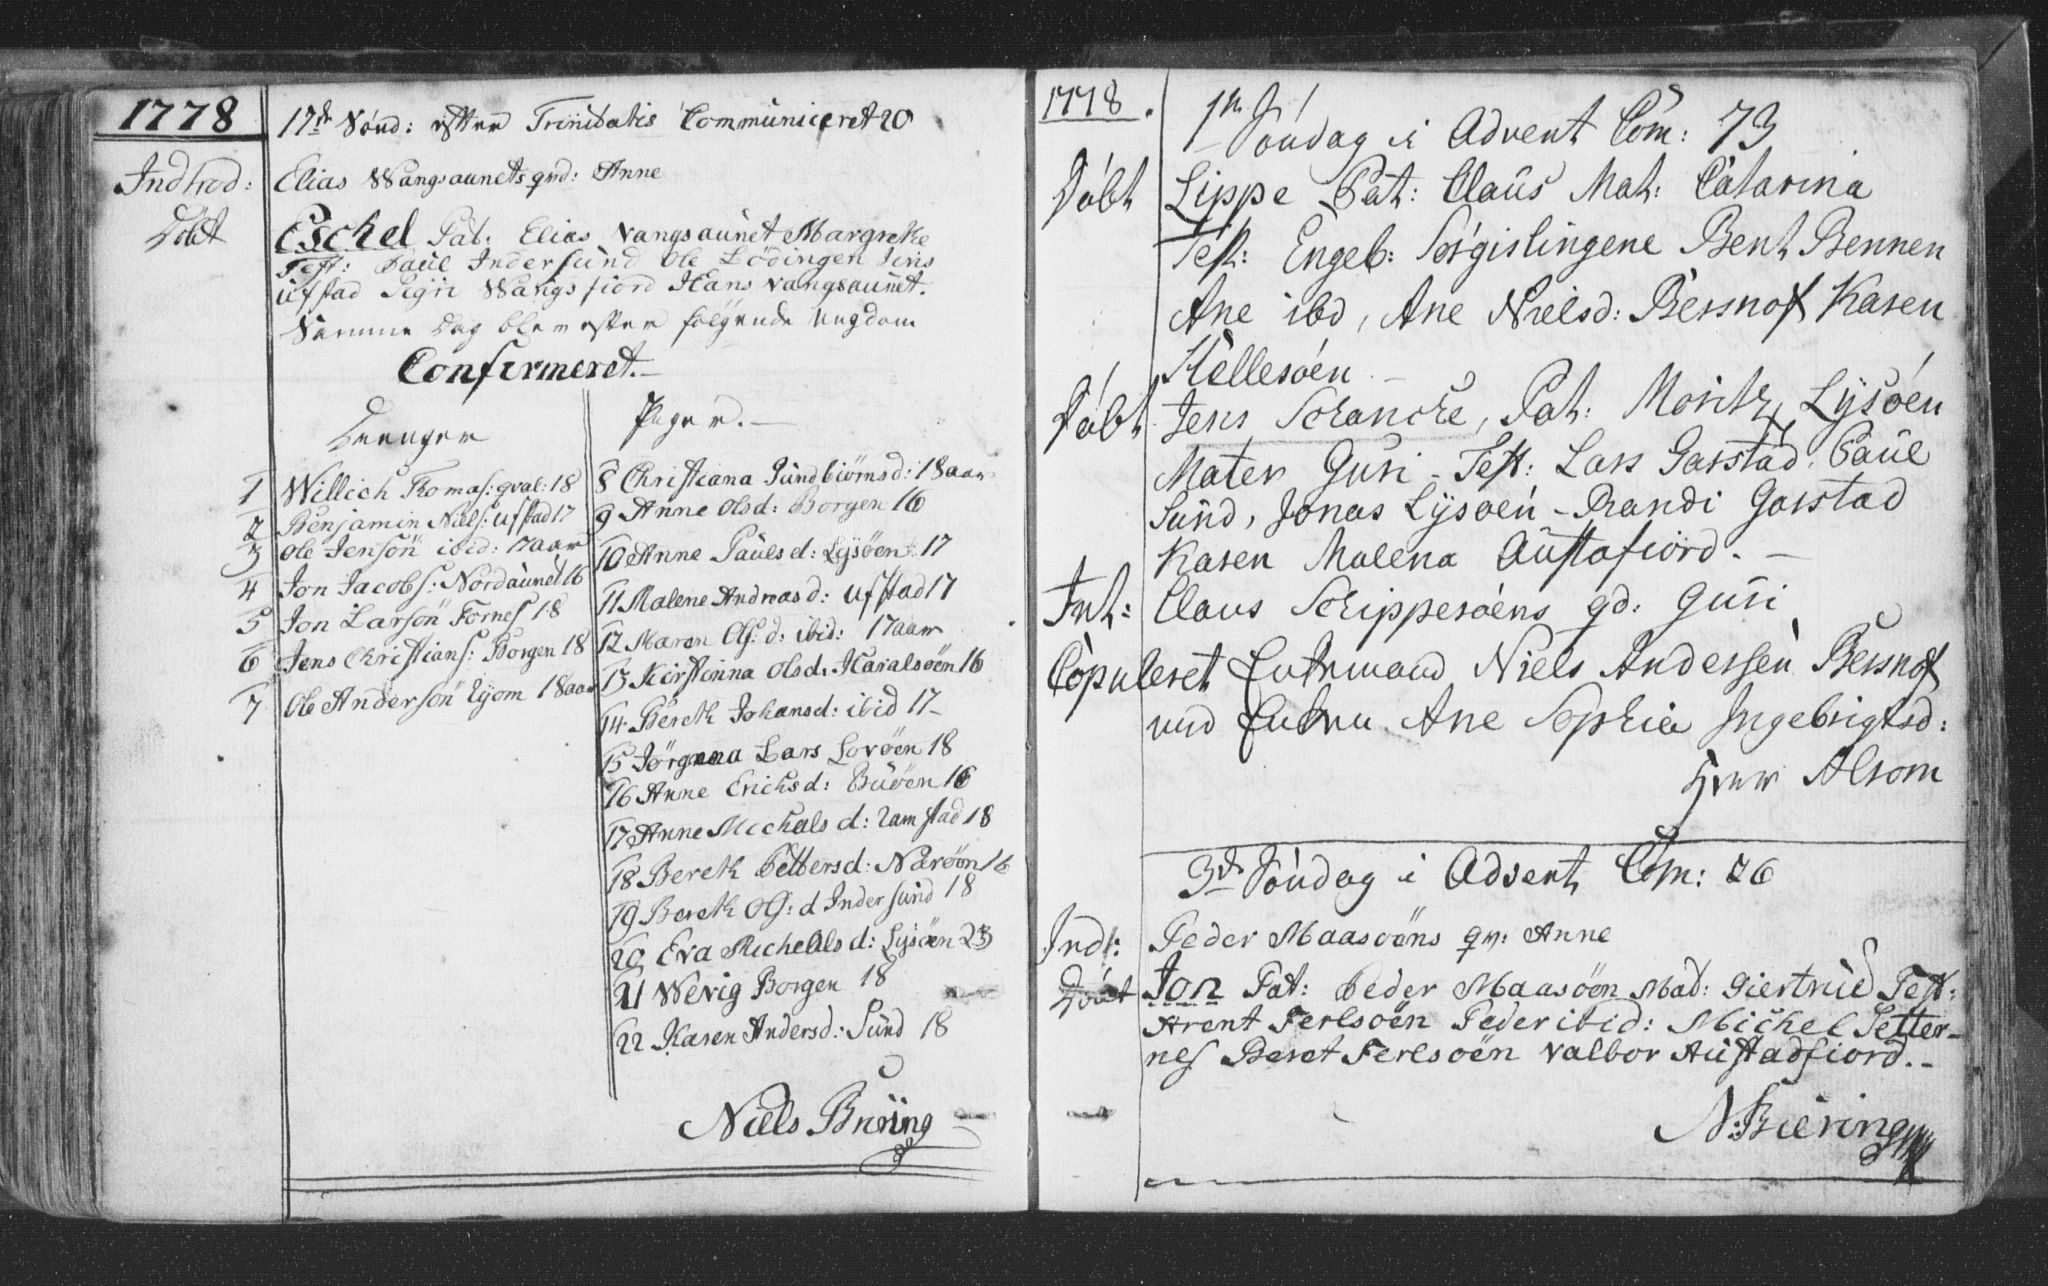 1778
17de Sønd: efter Trinitatis Communiceret 20
Indtrod: Elias Wangsaunets qvd: Anne
Døbt Eschel Pat: Elias Vangsaunet Margreke
Test: Paul Indersund Ole Lödingen Jens
ufstad Sigri Wangsfiord Hans Vangsaunet.
Samme Dag blev efter følgende Ungdom
Confirmeret.
Drenger
1 Willich Thomas: qval: 18
2 Benjamin Niels: ufstad 17
3 Ole Jensön ibid: 17 aar
4 Jon Jacobs: Nordaunet 16
5 Jon Larsön Fornes 18
6 Jens Christians: Borgen 18
7 Ole Andersön Eyom 18 aar
Piger.
8 Christiana Sundbiörnsd: 18 aar
9 Anne Olsd: Borgen 16
10 Anne Paulsd: Lysöen 17
11 Malene Andreasd: ufstad 17
12 Maren Ols: d: ibid: 17 aar
13 Kirstinna Olsd: Haralsöen 16
14 Bereth Johansd: ibid 17
15 Jörgina Lars Lovöen 18
16 Anne Erichsd: Buöen 16
17 Anne Michals d: Ramstad 18
18 Bereth Pettersd: Naröen 16
19 Bereth Ols: d Indersund 18
20 Eva Michells d: Lysöen 23
21 Wevig Borgen 18
22 Karen Andersd: Sund 18
Niels Biering
1778.
1te Söndag i Advent Com: 73
Döbt Lippe Pat: Claus Mat: Catarina
Test: Engeb: Sörgislingene Bent Bennen
Ane ibd, Ane Nielsd: Bessnof Karen
Kellesöen
Döbt Jens Schancke, Pat: Moritz Lysöen
Mater Guri - Test: Lars Garstad, Paul
Sund, Jonas Lysöen - Randi Garstad
Karen Malena Austafiord.
Int: Claus Schippesöens qd: Guri
Copuleret Enkemand Niels Andersen Bessnof
med Enken Ane Sophie Ingebrigtsd:
Alsom
3de Söndag i Advent Com: 26
Indt: Peder Maasöens qv: Anne
Döbt Jon Pat: Peder Maasöen Mad: Giertrud Test:
Arent Ferlsöen Peder ibid: Michel Setter-
nes Beret Ferlsöen Valbor Austadfiord.
N: Biering